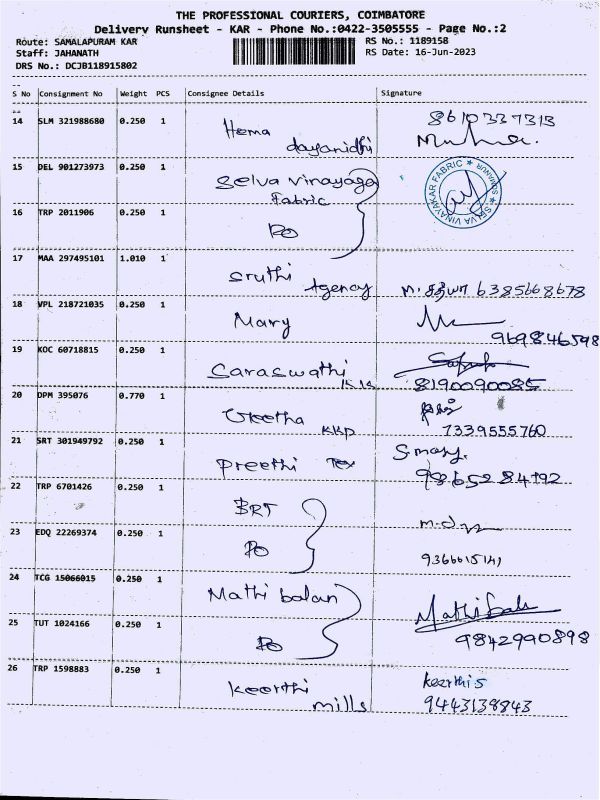 THE PROFESSIONAL COURIERS, COIMBATORE
Delivery Runsheet - KAR - Phone No.:0422-3505555 - Page No.:2
Route: SAMALAPURAM KAR RS No.: 1189158
Staff: JAHANATH RS Date: 16-Jun-2023
DRS No.: DCJB118915802
S No Consignment No Weight PCS Consignee Details Signature
14 SLM 321988680 0.250 1 Hema dayanidhi 8610337313
15 DEL 901273973 0.250 1 Selva Vinayaga Fabric SELVA VINAYAKAR FABRIC ★ SOMANUR ★
16 TRP 2011906 0.250 1 Do
17 MAA 297495101 1.010 1 Sruthi Agency M. சத்யா 6385668678
18 VPL 218721035 0.250 1 Mary 969846598
19 KOC 60718815 0.250 1 Saraswathi 8190090085
20 DPM 395076 0.770 1 Geetha KKP 7339555760
21 SRT 301949792 0.250 1 Preethi Tex S mary. 9865284792
22 TRP 6701426 0.250 1 BRT
23 EDQ 22269374 0.250 1 Do 9366615141
24 TCG 15066015 0.250 1 Mathi balan Mathibala
25 TUT 1024166 0.250 1 Do 9842990898
26 TRP 1598883 0.250 1 Keerthi mills Keerthi S 9443139843